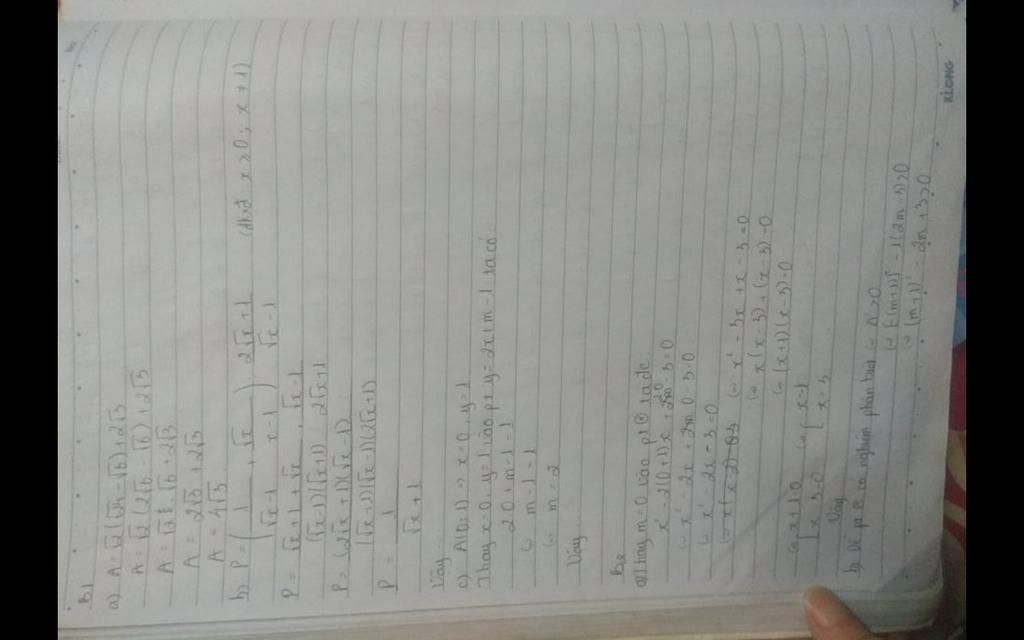 B1
a) A = √2(√24 - √6) + 2√3
A = √2(2√6 - √6) + 2√3
A = √2 . √6 + 2√3
A = 2√3 + 2√3
A = 4√3
b) P = ( 1/(√x-1) + √x/(x-1) ) : (2√x+1)/(√x-1) (đk: x ≥ 0; x ≠ 1)
P = (√x+1+√x)/((√x-1)(√x+1)) . (√x-1)/(2√x+1)
P = (2√x+1)(√x-1)/((√x+1)(√x-1)(2√x+1))
P = 1/(√x+1)
Vậy...
c) A(0;1) => x=0, y=1
Thay x=0, y=1 vào pt y=2x+m-1 ta có:
2.0+m-1=1
(=) m-1=1
(=) m=2
Vậy...
B2
a) Thay m=0 vào pt ta đc
x² - 2(0+1)x + 2.0 - 3 = 0
(=) x² - 2x + 2.0 - 3 = 0
(=) x² - 2x - 3 = 0
(=) x² - 3x + x - 3 = 0
(=) x(x-3) + (x-3) = 0
(=) (x+1)(x-3) = 0
(=) [x+1=0 (=) [x=-1
[x-3=0 [x=3
Vậy
b) Để pt có nghiệm phân biệt (=) Δ' > 0
(=) [-(m+1)]² - 1(2m-3) > 0
(=) (m+1)² - 2m + 3 > 0
XLONG